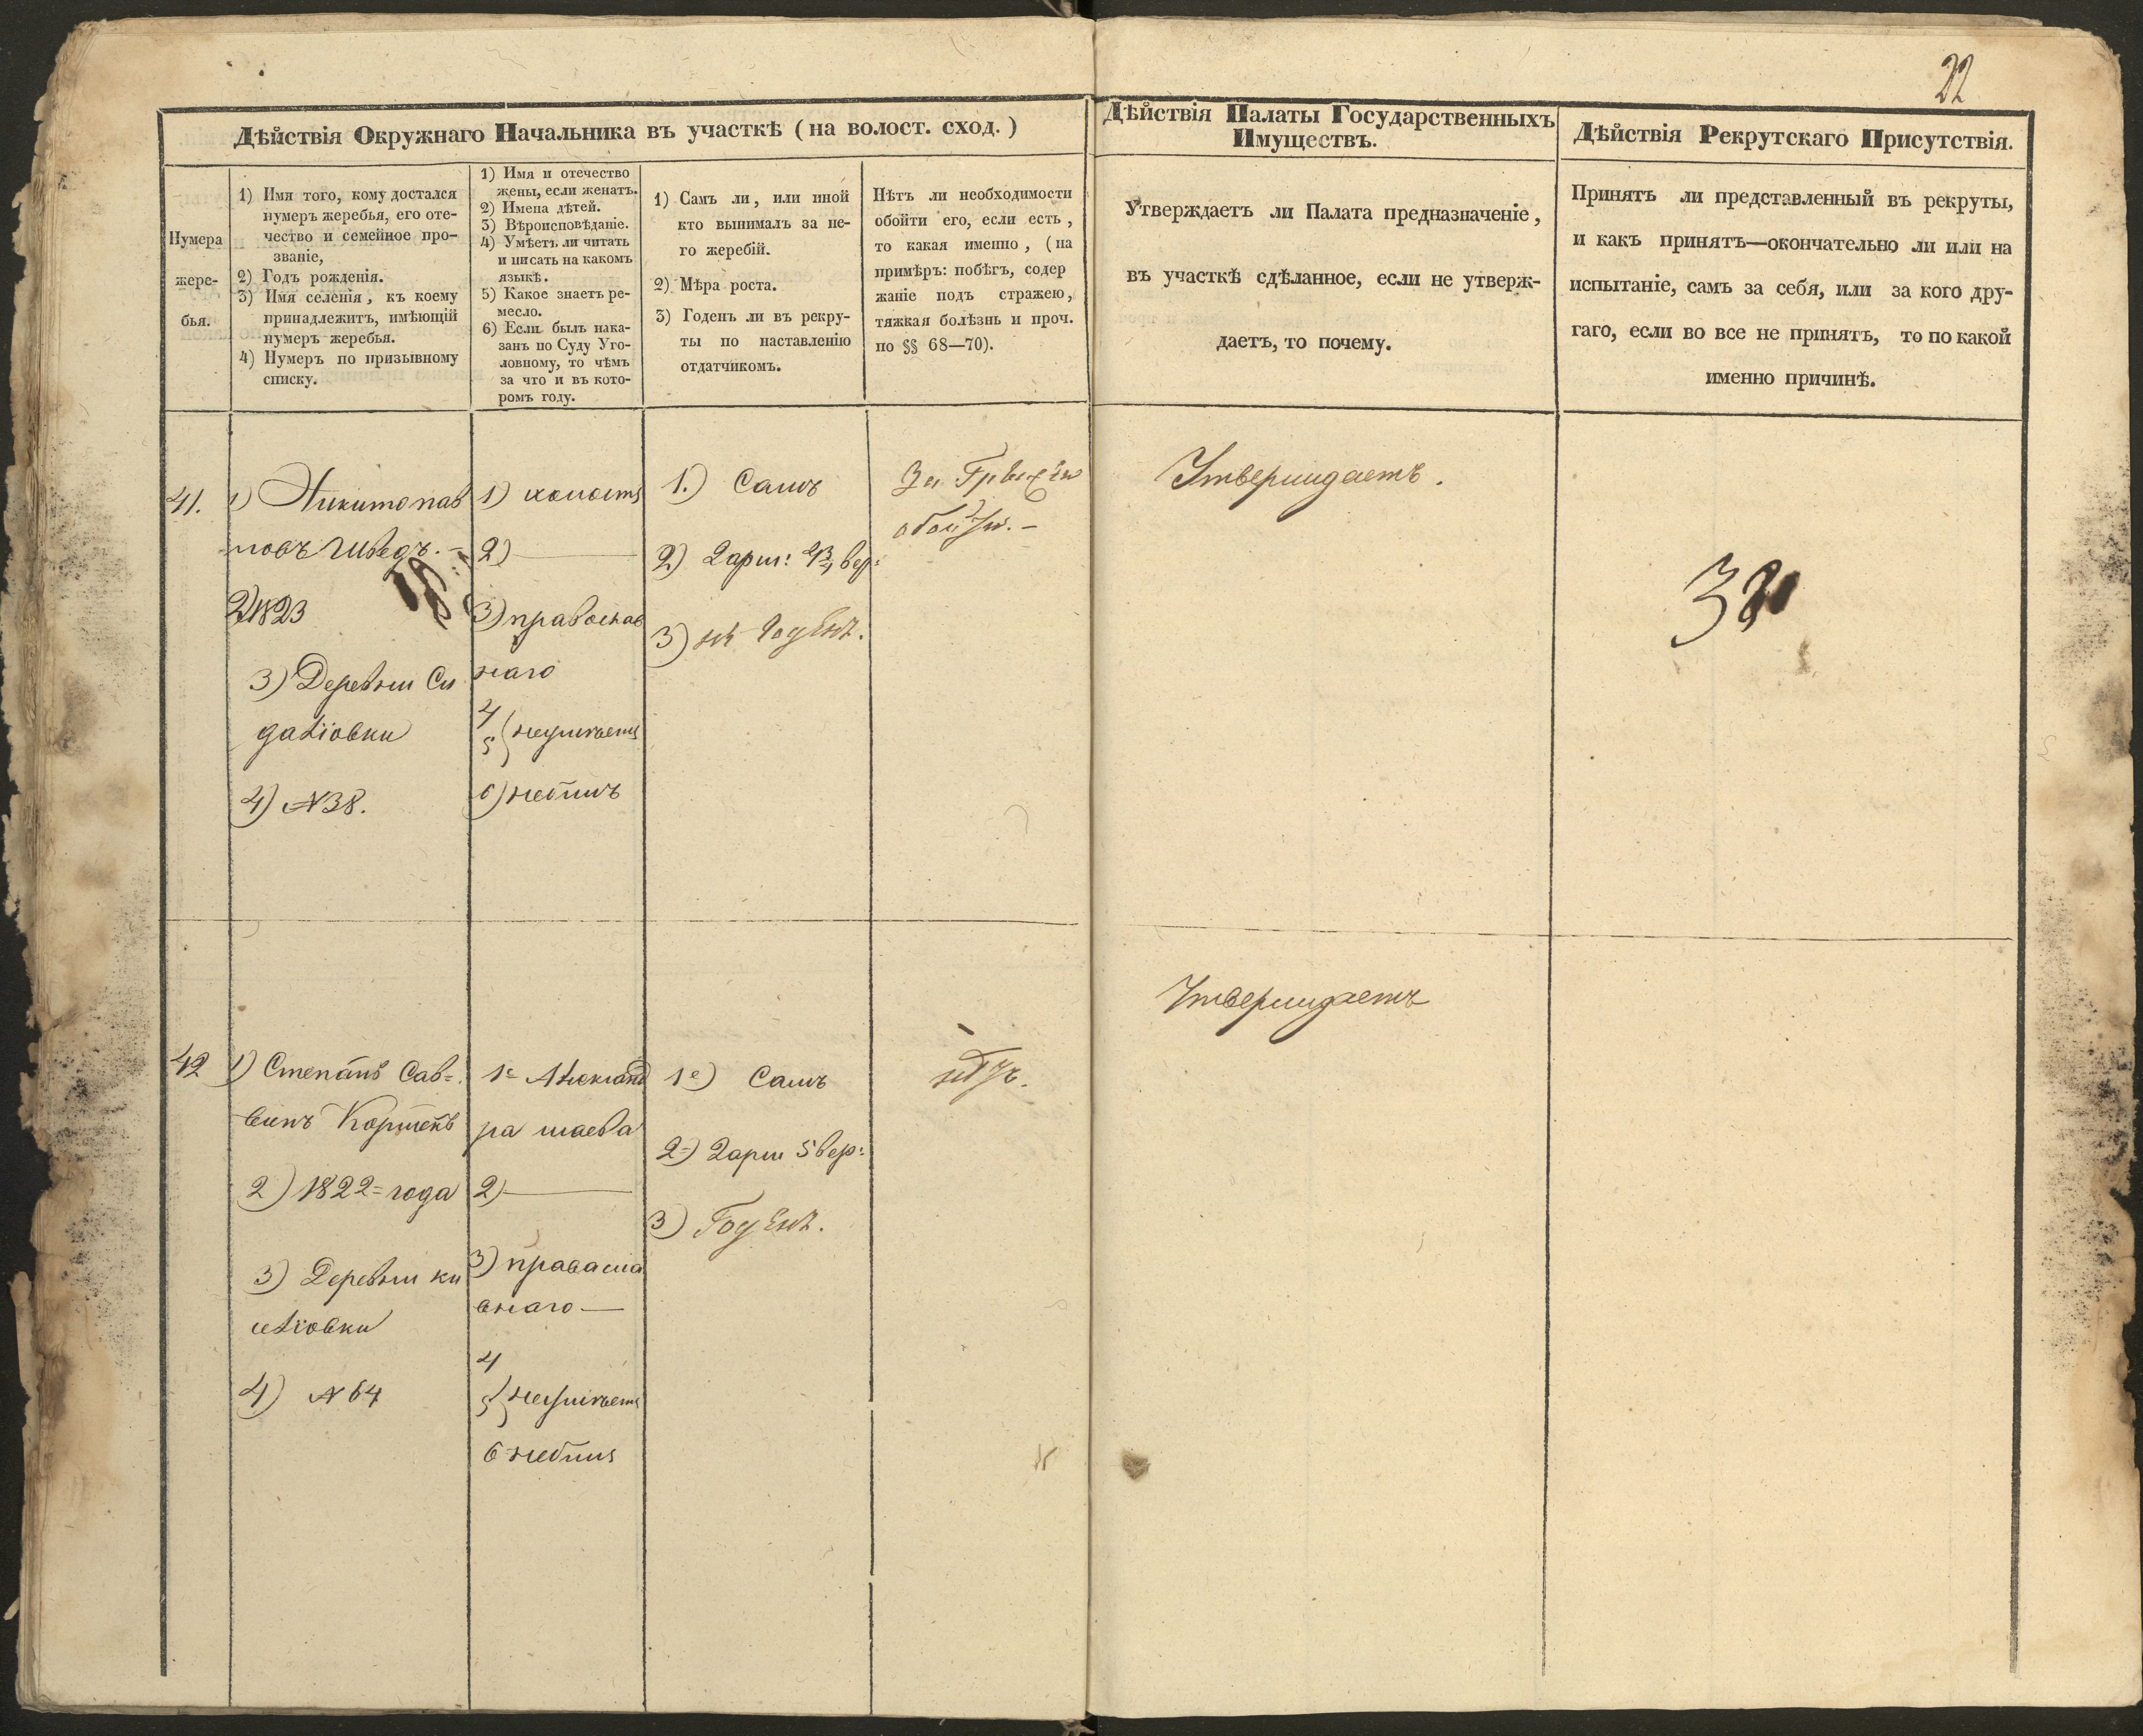 22
Дѣйствія Окружнаго Начальника въ участкѣ (на волост. сход.)
Нумера
жере-
бья.
1) Имя того, кому достался
нумеръ жеребья, его оте-
чество и семейное про-
званіе,
2) Годъ рожденія.
3) Имя селенія, къ коему
принадлежитъ, имѣющій
нумеръ жеребья.
4) Нумеръ по призывному
списку.
1) Имя и отечество
жены, если женатъ.
2) Имена дѣтей.
3) Вѣроисповѣданіе.
4) Умѣетъ ли читать
и писать на какомъ
языкѣ.
5) Какое знаетъ ре-
месло.
6) Если былъ нака-
занъ по Суду Уго-
ловному, то чѣмъ
за что и въ кото-
ромъ году.
1) Самъ ли, или иной
кто вынималъ за не-
го жеребій.
2) Мѣра роста.
3) Годенъ ли въ рекру-
ты по наставленію
отдатчикомъ.
Нѣтъ ли необходимости
обойти его, если есть,
то какая именно, (на
примѣръ: побѣгъ, содер
жаніе подъ стражею,
тяжкая болѣзнь и проч.
по §§ 68—70).
Дѣйствія Палаты Государственныхъ
Имуществъ.
Утверждаетъ ли Палата предназначеніе,
въ участкѣ сдѣланное, если не утверж-
даетъ, то почему.
Дѣйствія Рекрутскаго Присутствія.
Принятъ ли представленный въ рекруты,
и какъ принятъ—окончательно ли или на
испытаніе, самъ за себя, или за кого дру-
гаго, если во все не принятъ, то по какой
именно причинѣ.
41.
1) Никито
Шведъ. –
2) 1823
3) Деревни Си
4) №38.
1) холостъ
2) —
3) православ
наго
4
5 } неумѣетъ
6) небылъ
1.) Самъ
2) 2 арш: вер:
3) не годенъ.
Утверждаетъ.
42
1) Степанъ Сав=
2) 1822 = года
3) Деревни ки
4) № 64
1е Александ
ра
2) —
3) правосла
внаго —
4
5 } неумѣетъ
6 небылъ
1е) Самъ
2=) 2 арш 5 вер:
3) Годенъ.
нѣтъ.
Утверждаетъ